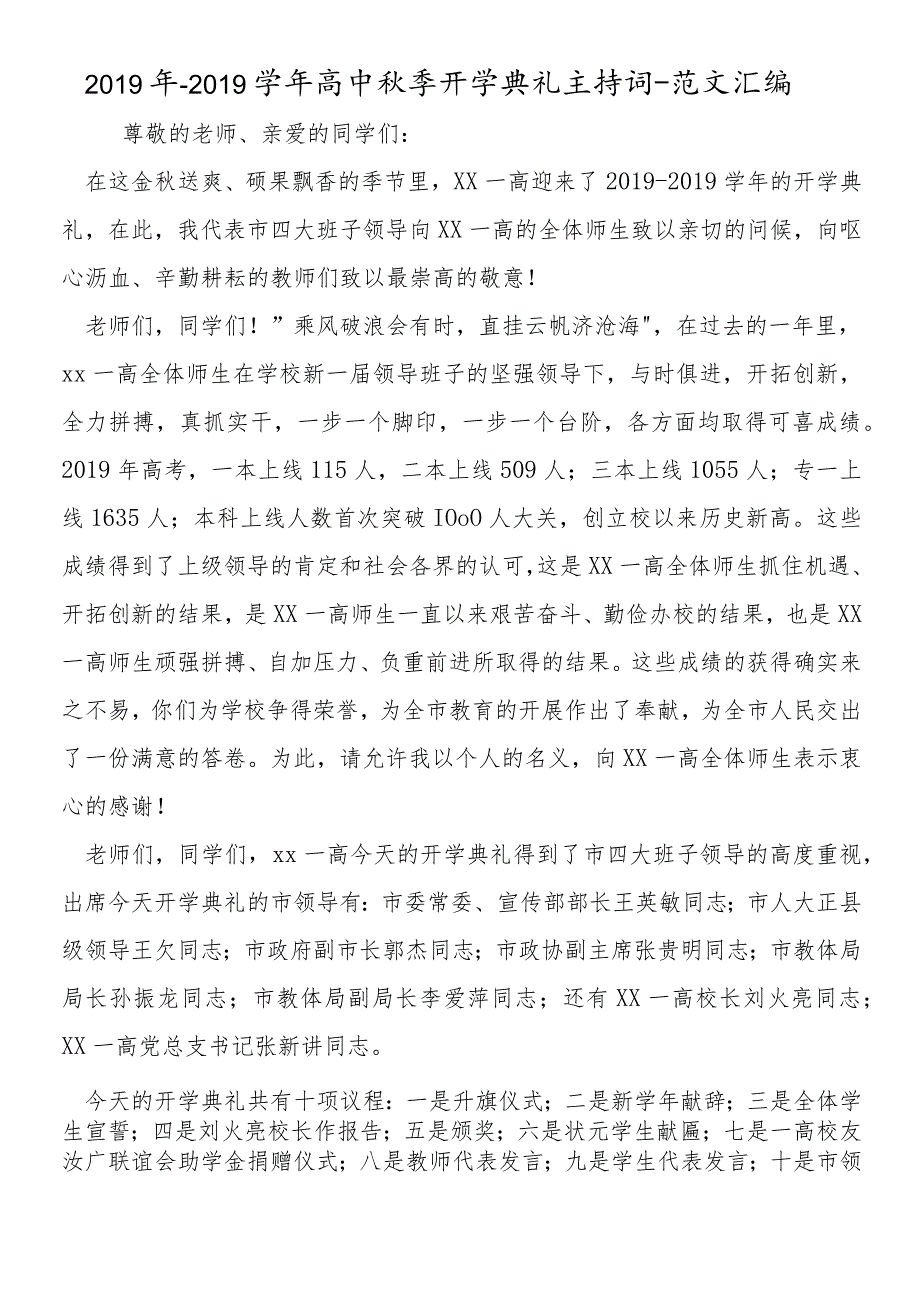 2019年-2019学年高中秋季开学典礼主持词-范文汇编
尊敬的老师、亲爱的同学们：
在这金秋送爽、硕果飘香的季节里，XX一高迎来了2019-2019学年的开学典
礼，在此，我代表市四大班子领导向XX一高的全体师生致以亲切的问候，向呕
心沥血、辛勤耕耘的教师们致以最崇高的敬意！
老师们，同学们！”乘风破浪会有时，直挂云帆济沧海"，在过去的一年里，
xx一高全体师生在学校新一届领导班子的坚强领导下，与时俱进，开拓创新，
全力拼搏，真抓实干，一步一个脚印，一步一个台阶，各方面均取得可喜成绩。
2019年高考，一本上线115人，二本上线509人；三本上线1055人；专一上
线1635人；本科上线人数首次突破IOoO人大关，创立校以来历史新高。这些
成绩得到了上级领导的肯定和社会各界的认可，这是XX一高全体师生抓住机遇、
开拓创新的结果，是XX一高师生一直以来艰苦奋斗、勤俭办校的结果，也是XX
一高师生顽强拼搏、自加压力、负重前进所取得的结果。这些成绩的获得确实来
之不易，你们为学校争得荣誉，为全市教育的开展作出了奉献，为全市人民交出
了一份满意的答卷。为此，请允许我以个人的名义，向XX一高全体师生表示衷
心的感谢！
老师们，同学们，xx一高今天的开学典礼得到了市四大班子领导的高度重视，
出席今天开学典礼的市领导有：市委常委、宣传部部长王英敏同志；市人大正县
级领导王欠同志；市政府副市长郭杰同志；市政协副主席张贵明同志；市教体局
局长孙振龙同志；市教体局副局长李爱萍同志；还有XX一高校长刘火亮同志；
XX一高党总支书记张新讲同志。
今天的开学典礼共有十项议程：一是升旗仪式；二是新学年献辞；三是全体学
生宣誓；四是刘火亮校长作报告；五是颁奖；六是状元学生献匾；七是一高校友
汝广联谊会助学金捐赠仪式；八是教师代表发言；九是学生代表发言；十是市领